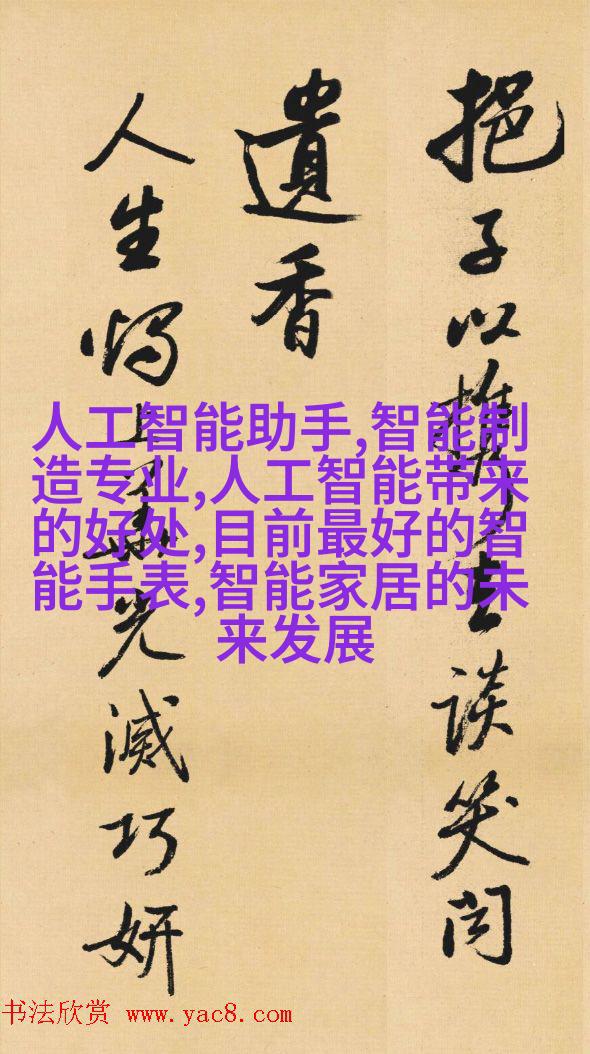 挹子以攜去談笑聞
遺香
人生燭上華光滅巧妍
人工智能助手,智能制
造专业,人工智能带来
的好处,目前最好的智
能手表,智能家居的未
来发展
书法欣赏 www.yac8.com